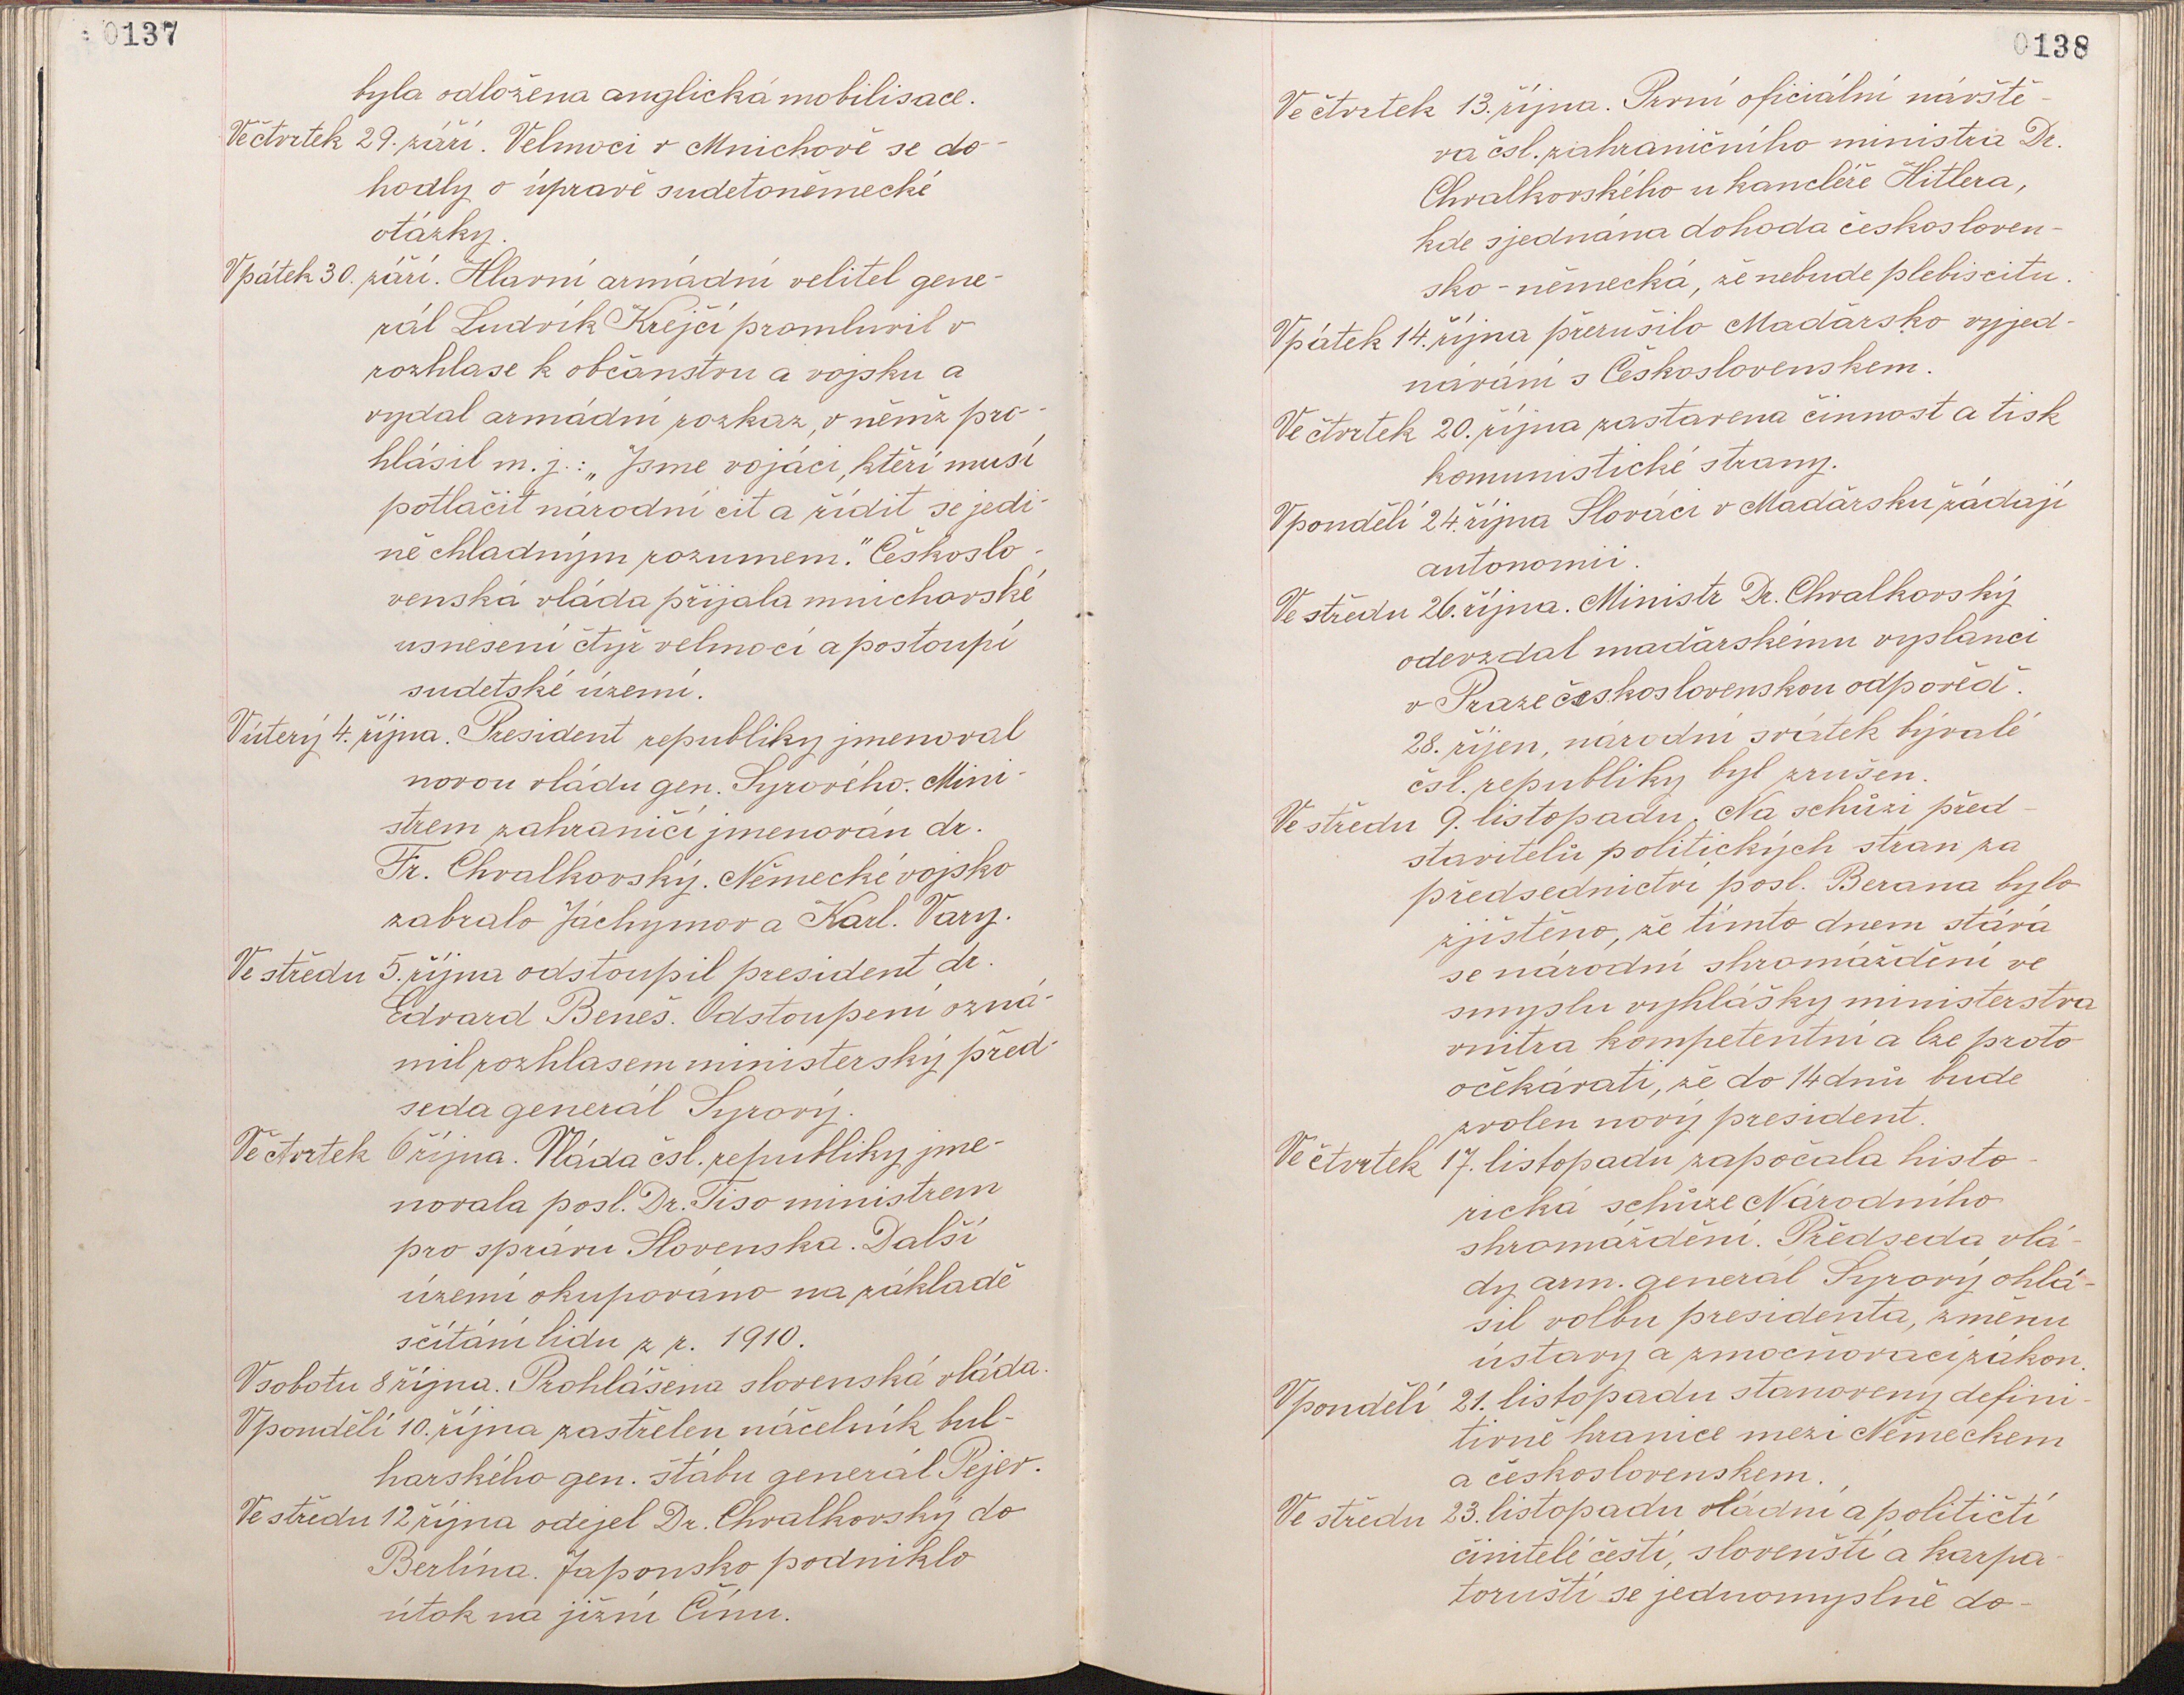 0137
byla odložena anglická mobilisace.
Ve čtvrtek 29. září. Velmoci v Mnichově se do-
hodly o úpravě sudetoněmecké
otázky.
V pátek 30. září. Hlavní armádní velitel gene-
rál Ludvík Krejčí promluvil v
rozhlase k občanstvu a vojsku a
vydal armádní rozkaz, v němž pro-
hlásil m. j.: „Jsme vojáci, kteří musí
potlačit národní cit a řídit se jedi-
ně chladným rozumem." Českoslo-
venská vláda přijala mnichovské
usnesení čtyř velmocí a postoupí
sudetské území.
V úterý 4. října. President republiky jmenoval
novou vládu gen. Syrového. Mini-
strem zahraničí jmenován dr.
Fr. Chvalkovský. Německé vojsko
zabralo Jáchymov a Karl. Vary.
Ve středu 5. října odstoupil president dr.
Edvard Beneš. Odstoupení ozná-
mil rozhlasem ministerský před-
seda generál Syrový.
Ve čtvrtek 6 října. Vláda čsl. republiky jme-
novala posl. Dr. Tiso ministrem
pro správu Slovenska. Další
území okupováno na základě
sčítání lidu z r. 1910.
V sobotu 8 října. Prohlášena slovenská vláda.
V pondělí 10. října zastřelen náčelník bul-
harského gen. štábu generál Pejev.
Ve středu 12 října odejel Dr. Chvalkovský do
Berlína. Japonsko podniklo
útok na jižní Čínu.
0138
Ve čtvrtek 13. října. První oficiální návště-
va čsl. zahraničního ministra Dr.
Chvalkovského u kancléře Hitlera,
kde sjednána dohoda českosloven-
sko-německá, že nebude plebiscitu.
V pátek 14. října přerušilo Maďarsko vyjed-
návání s Československem.
Ve čtvrtek 20. října zastavena činnost a tisk
komunistické strany.
V pondělí 24. října Slováci v Maďarsku žádají
autonomii.
Ve středu 26. října. Ministr Dr. Chvalkovský
odevzdal maďarskému vyslanci
v Praze československou odpověď.
28. říjen, národní svátek bývalé
čsl. republiky byl zrušen.
Ve středu 9. listopadu. Na schůzi před-
stavitelů politických stran za
předsednictví posl. Berana bylo
zjištěno, že tímto dnem stává
se národní shromáždění ve
smyslu vyhlášky ministerstva
vnitra kompetentní a lze proto
očekávati, že do 14 dnů bude
zvolen nový president.
Ve čtvrtek 17. listopadu započala histo-
rická schůze Národního
shromáždění. Předseda vlá-
dy arm. generál Syrový ohlá-
sil volbu presidenta, změnu
ústavy a zmocňovací zákon.
V pondělí 21. listopadu stanoveny defini-
tivně hranice mezi Německem
a československem.
Ve středu 23. listopadu vládní a političtí
činitelé čeští, slovenští a karpa-
toruští se jednomyslně do-